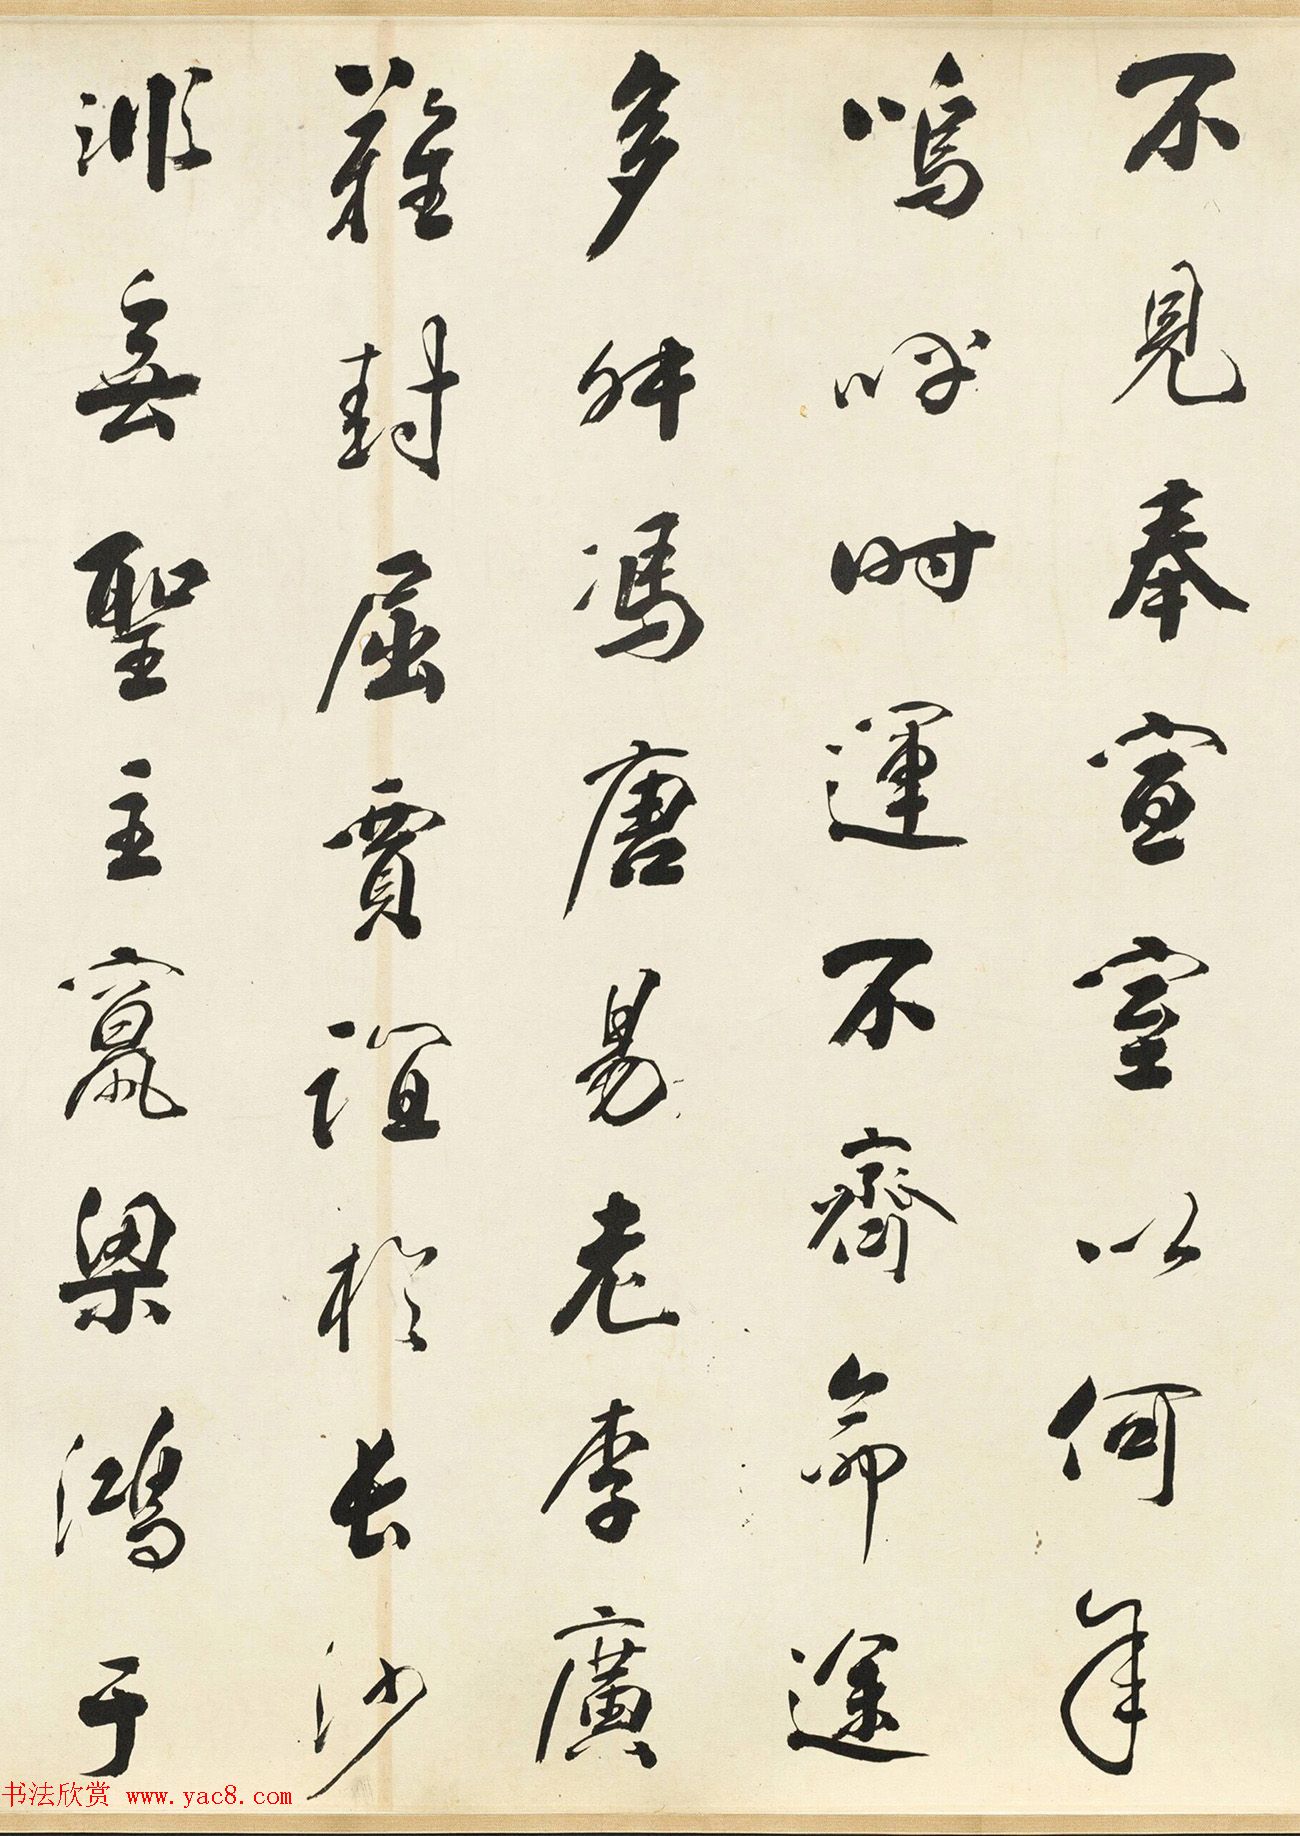 不見奉宣室以何年
嗚呼時運不齊命途
多舛馮唐易老李廣
難封屈賈誼於長沙
非無聖主竄梁鴻于
书法欣赏 www.yac8.com